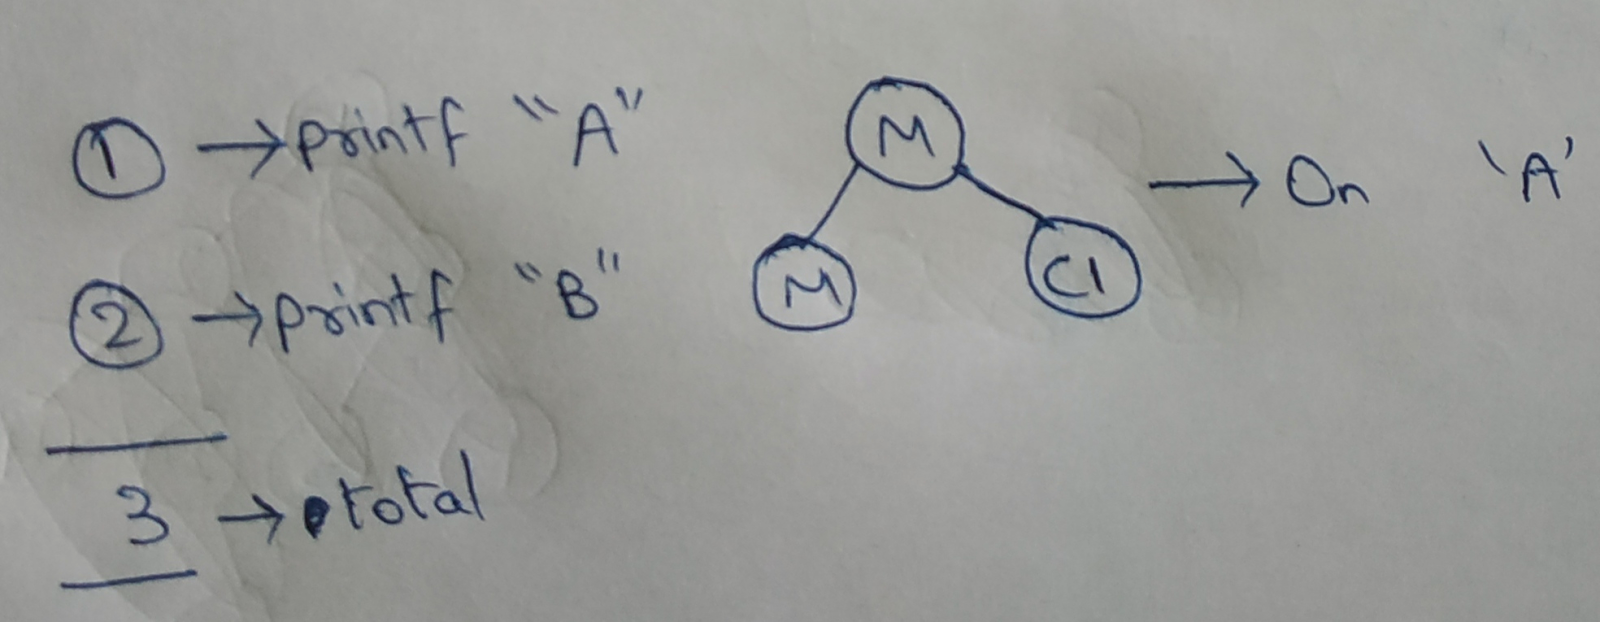 ① → printf "A"
② → printf "B"
3 → total
M
M
C1
→ On 'A'